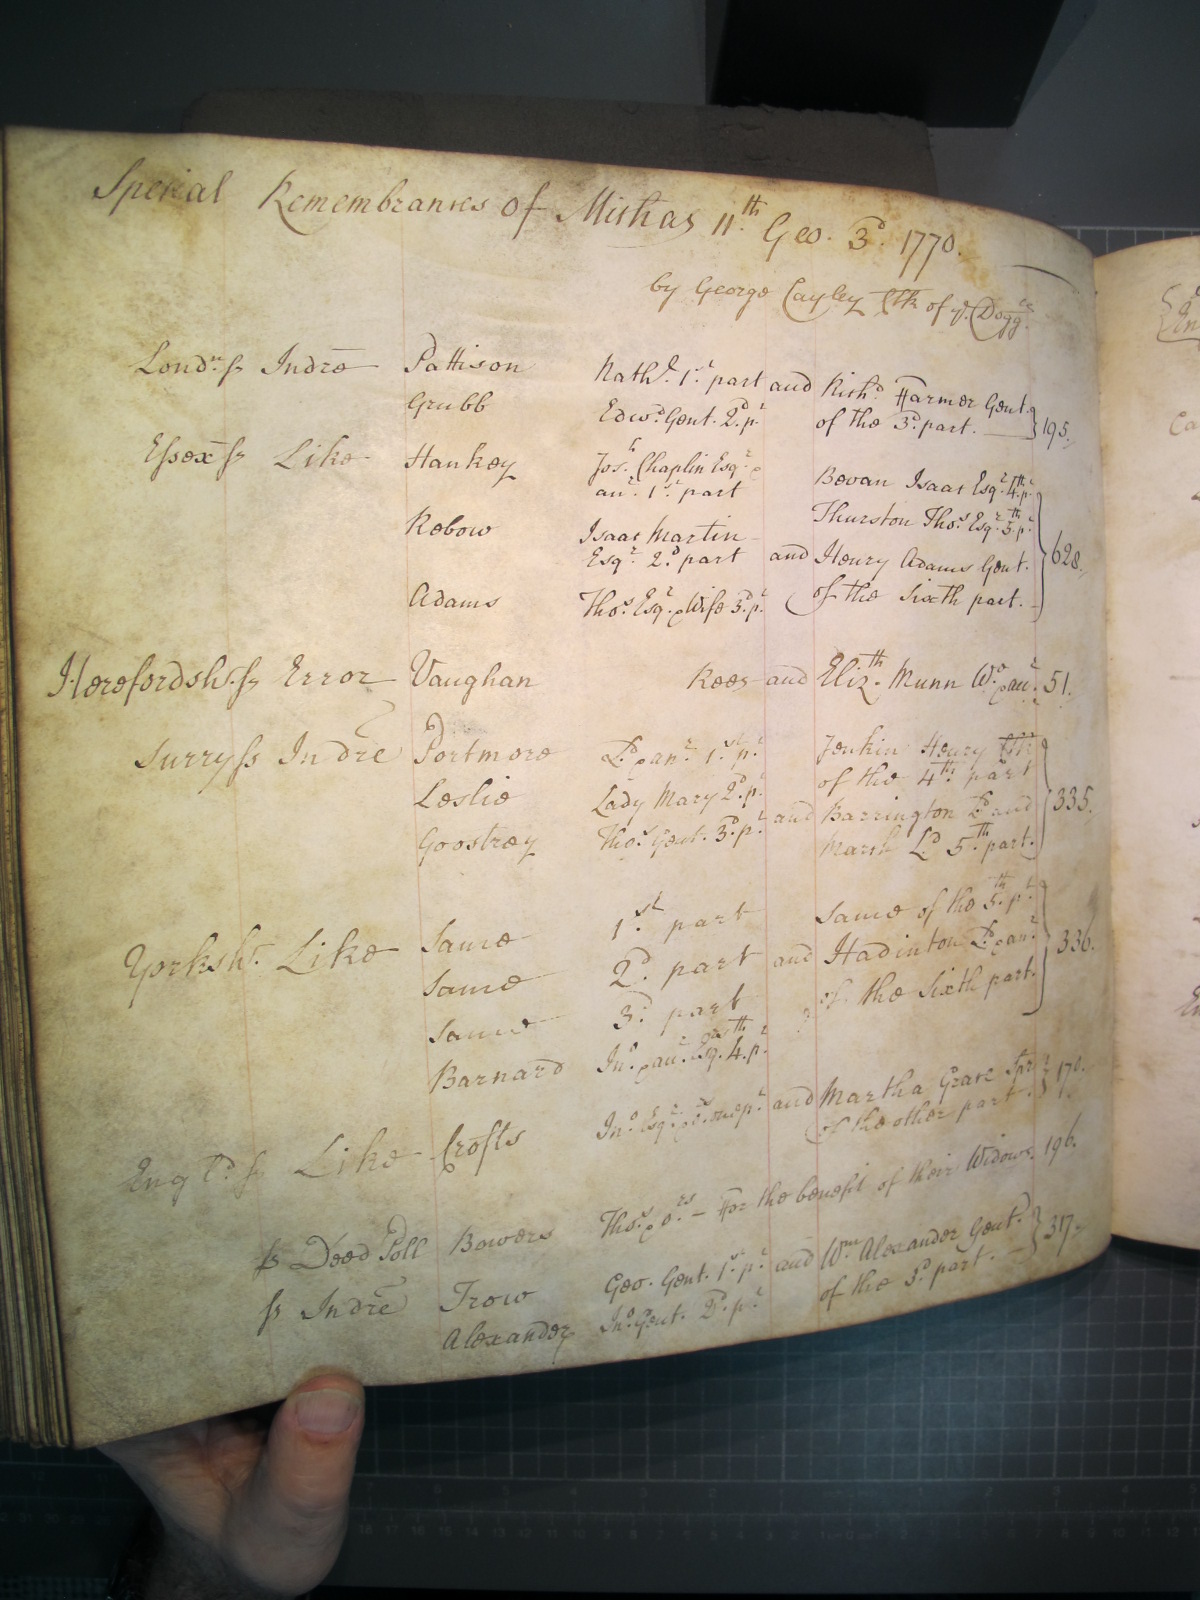 Special Remembrances of Michas 11th Geo. 3d. 1770.
by George Cayley Clk of ye Dogg
Londn. ss Indre Pattison Nathl. 1st part and Richd Farmer Gent.
Grubb Edwd Gent. 2d. pt of the 3d. part. 195.
Essex ss Like Hankey Josh. Chaplin Esqr &
anr. 1st part Bevan Isaac Esqr. 4th pt
Rebow Isaac Martin Thurston Thos Esqr 5th pt
Esqr. 2d part and Henry Adams Gent. 628.
Adams Thos Esqr. & Wife 3d. pt of the Sixth part.
Herefordsh. ss Error Vaughan Rees and Elizth. Munn Wo. & anr. 51.
Surry ss Indre Portmore Ld. & anr. 1st. pt. Jenkin Henry Clk
of the 4th part
Leslie Lady Mary 2d. pt. and Barrington Ld and 335.
Goostrey Thos. Gent. 3d. pt. Marsh Ld 5th part.
Yorksh. Like Same 1st part Same of the 5th pt.
Same 2d part and Hadinton Ld. & anr. 336.
Same 3d. part of the Sixth part.
Barnard Jno. & anr. Esqrs. 4th pt
Eng Ld. ss Like Crofts Jno. Esqr. & of one pt. and Martha Grace Spr 170.
of the other part
ss Deed Poll Bowers Thos. & ors - For the benefit of their Widows. 196.
ss Indre Trow Geo. Gent. 1st. pt and Wm Alexander Gent. 317.
Alexander Jno. Gent. 2d. pt of the 3d part.